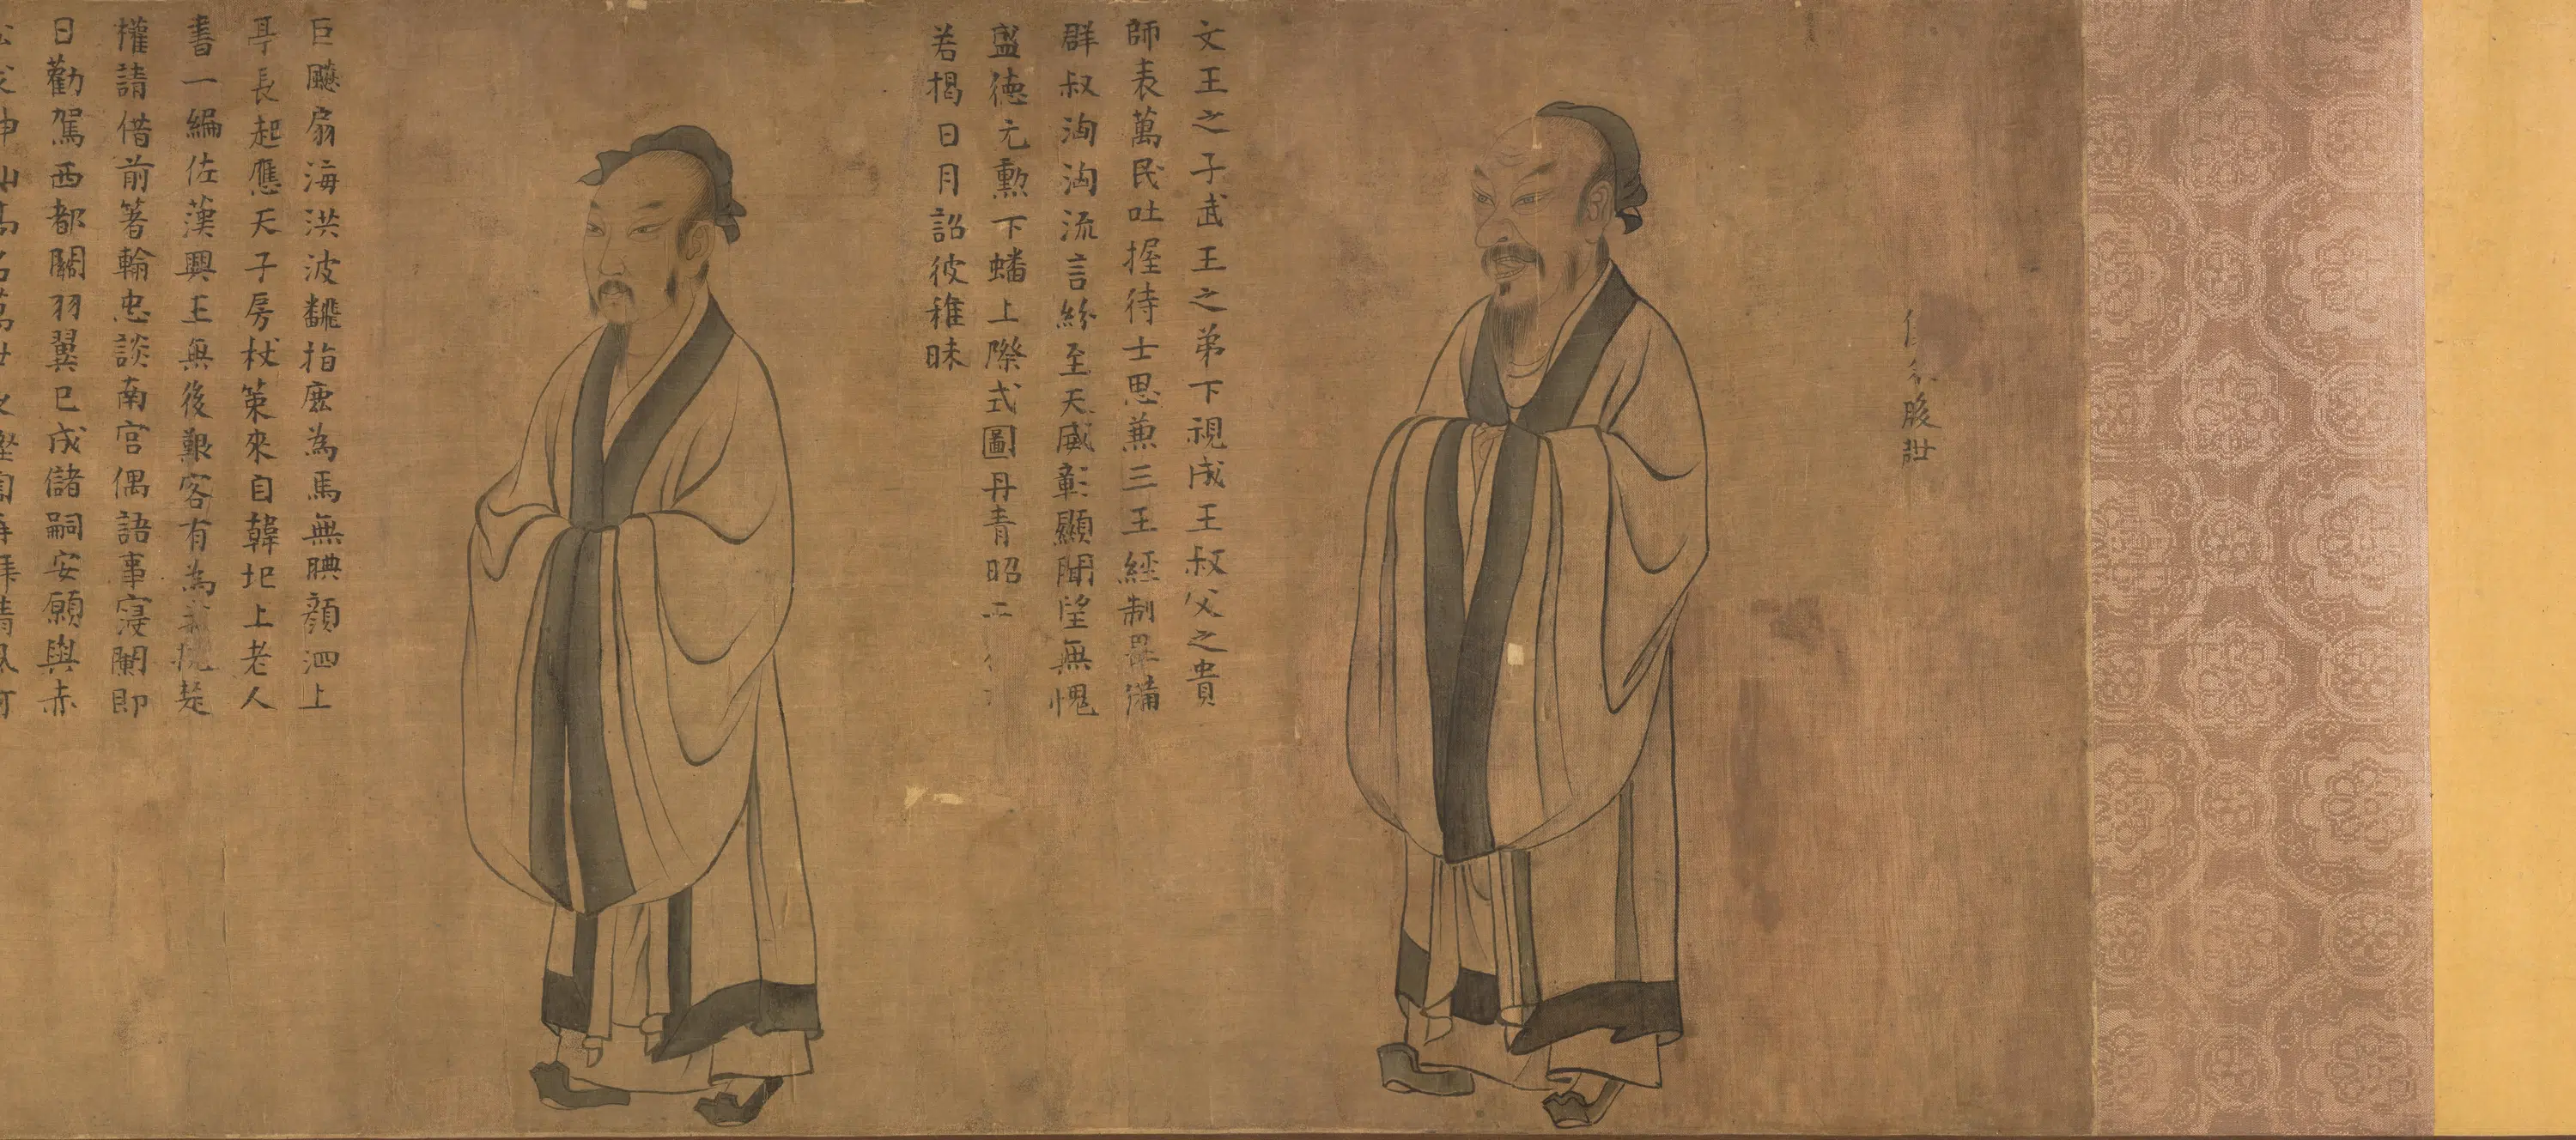 後世
文王之子武王之弟下視成王叔父之貴
師表萬民吐握待士思兼三王經制畢備
群叔洶洶流言紛至天威彰顯聞望無愧
盛德元勳下蟠上際式圖丹青昭
若揭日月詔彼稚昧
巨飈扇海洪波飜指鹿為馬無腆顏泗上
亭長起應天子房杖策來自韓圯上老人
書一編佐漢興王無後艱客有為楚
權請借前箸輸忠談南宮偶語事寖闌即
日勸駕西都關羽翼已成儲嗣安願與赤